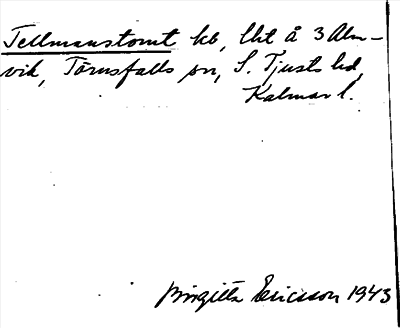 Tellmanstomt kb, lht å 3 Alm-
vik, Törnsfalls sn, S. Tjusts hd,
Kalmar l.
Birgitta Ericsson 1943